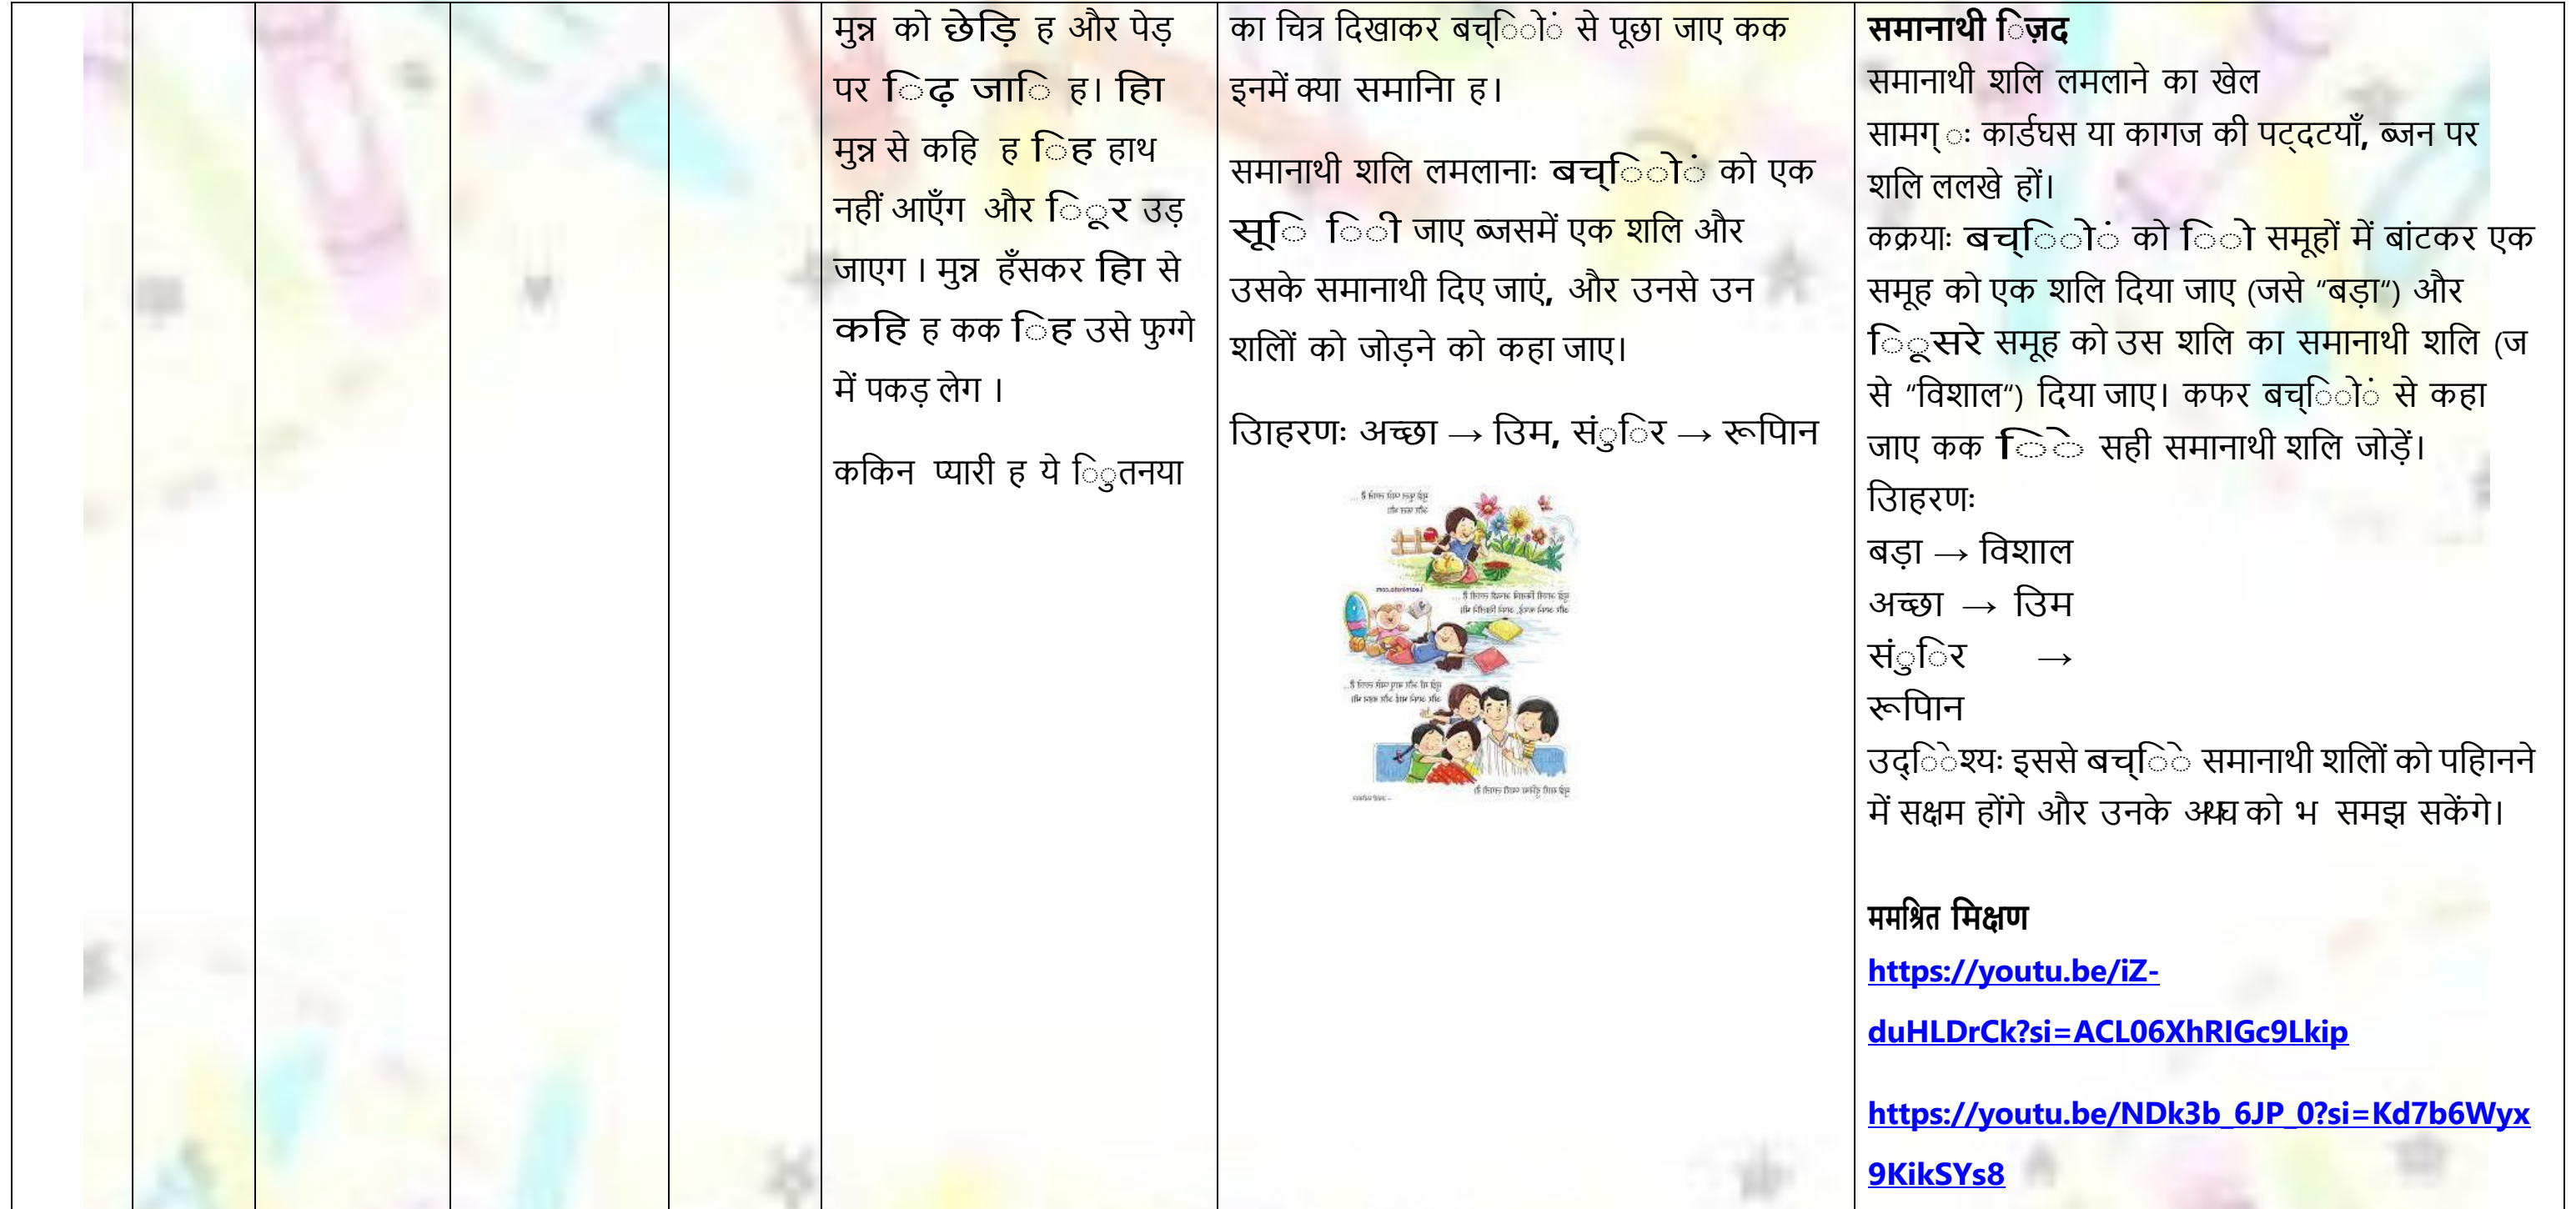 मुन्न को छेड़ि ह और पेड़
पर िढ़ जाि ह। हिा
मुन्न से कहि ह िह हाथ
नहीं आएँग और िूर उड़
जाएग । मुन्न हँसकर हिा से
कहि ह कक िह उसे फुग्गे
में पकड़ लेग ।
ककिन प्यारी ह ये िुतनया
का चित्र दिखाकर बच्िों से पूछा जाए कक
इनमें क्या समानिा ह।
समानाथी शलि लमलानाः बच्िों को एक
सूि िी जाए ब्जसमें एक शलि और
उसके समानाथी दिए जाएं, और उनसे उन
शलिों को जोड़ने को कहा जाए।
उिाहरणः अच्छा → उिम, संुिर → रूपिान
समानाथी िज़द
समानाथी शलि लमलाने का खेल
सामग् ः कार्डघस या कागज की पट्दटयाँ, ब्जन पर
शलि ललखे हों।
कक्रयाः बच्िों को िो समूहों में बांटकर एक
समूह को एक शलि दिया जाए (जसे “बड़ा“) और
िूसरे समूह को उस शलि का समानाथी शलि (ज
से “विशाल“) दिया जाए। कफर बच्िों से कहा
जाए कक िे सही समानाथी शलि जोड़ें।
उिाहरणः
बड़ा → विशाल
अच्छा → उिम
संुिर →
रूपिान
उद्िेश्यः इससे बच्िे समानाथी शलिों को पहिानने
में सक्षम होंगे और उनके अथघ को भ समझ सकेंगे।
ममश्रित मिक्षण
https://youtu.be/iZ-
duHLDrCk?si=ACL06XhRIGc9Lkip
https://youtu.be/NDk3b_6JP_0?si=Kd7b6Wyx
9KikSYs8